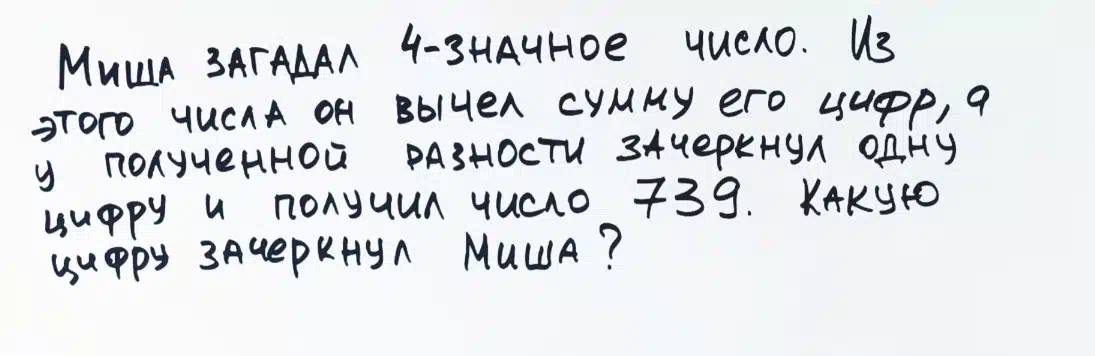 Миша загадал 4-значное число. Из
этого числа он вычел сумму его цифр, а
у полученной разности зачеркнул одну
цифру и получил число 739. Какую
цифру зачеркнул Миша?